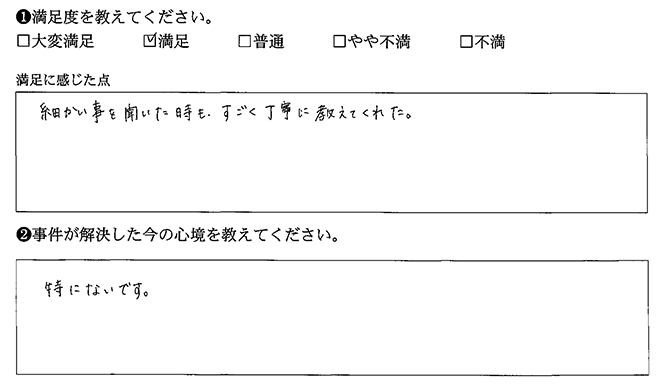 ❶満足度を教えてください。
□大変満足 ☑満足 □普通 □やや不満 □不満
満足に感じた点
細かい事を聞いた時も、すごく丁寧に教えてくれた。
❷事件が解決した今の心境を教えてください。
特にないです。